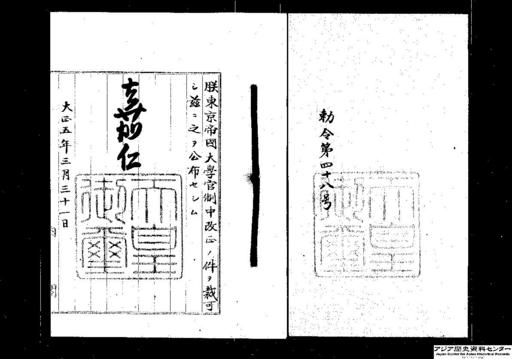 勅令第四十八号
朕東京帝國大學官制中改正ノ件ヲ裁可
シ茲ニ之ヲ公布セシム
嘉仁
天皇御璽
大正五年三月三十一日
アジア歴史資料センター
Japan Center for Asian Historical Records